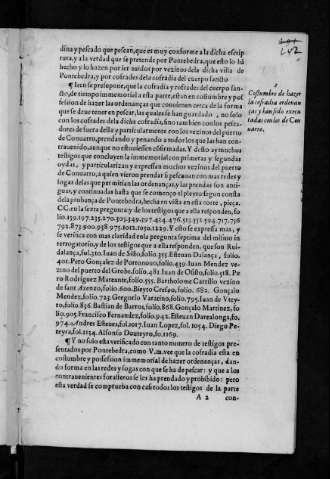 dina y pescado que pescan, que es muy conforme a la dicha escrip
tura, y a la verdad que se pretende por Pontebedra, que esto lo ha
hecho y lo hazen por ser auidos por vezinos dela dicha villa de
Pontebedra, y por cofrades dela cofradia del cuerpo sancto,
¶ Iten se propone, que la cofradia y cofrades del cuerpo san-
cto, de tiempo inmemorial a esta parte, estan en costumbre y pos-
session de hazer las ordenanças que conuienen cerca de la forma
que se deue tener en pescar, las quales se han guardado, no solo
con los cofrades dela dicha cofradia, sino tambien con los otros
forasteros de fuera della y particularmente con los vezinos del
puerto de Conuarro, prendando y penando a todos los que las han
contrauenido, aunque no estuuiessen cofirmadas. Y desto ay muchos
testigos que concluyen la inmemorial con primeras y segundas
oydas, y particularizan y expressan muchos vezinos del puerto
de Conuarro, a quien vieron prender si pescauan con mas redes y
sogas delas que permiten las ordenanças, y las prendas son anti-
guas, y continuadas hasta que se començo el pleyto segun consta
dela probança de Pontebedra, hecha en vista en esta corte, pieça.
CC. en la sexta pregunta y de los testigos que a ella responden, fo
lio.
Y esto se expressa mas, y
se verifica con mas claridad enla pregunta septima del mismo in-
terrogatorio, y de los testigos que a ella responden, que son Rui
dalança, fol. 310. Iuan de Siso, folio. 355. Esteuan Dalança, folio.
401. Pero Gonçalez de Portonouo, folio. 439. Iuan Mendez ve-
zino del puerto del Grobe, folio. 481. Iuan de Osiño, folio. 518. Pe
ro Rodriguez Maruño, folio. 555. Bartholome Carrillo vezino
de sant Axenzo, folio. 600. Bieyto Crespo, folio. 682. Gonçalo
Mendez, folio. 723. Gregorio Varzeino, folio. 795. Iuan de Vtey-
ro, folio. 836. Bastian de Barros, folio. 868. Gonçalo de Cons, fo
lio. 905. Francisco Fernandez, folio. 942. Esteuan Darealonga, fo
974. Andres Esteuez, fol. 1017. Iuan Lopez, fol. 1054. Diego Pe-
reyra, fol. 1134. Alfonso Douteyro, fo. 1169.
¶ Y no solo esta verificado con tanto numero de testigos pre-
sentados por Pontebedra, como V. m. vee que la cofradia esta en
costumbre y possession inmemorial de hazer ordenanças, dan-
do forma en las redes y sogas con que se ha de pescar: y que a los
contrauenientes forasteros se les ha prendado y prohibido: pero
esta verdad se comprueua con casi todos los testigos de la parte
A 2 con-
Costumbre de hazer
la cofradia ordenan
ças y han sido execu
tadas con los de Con
uarro.